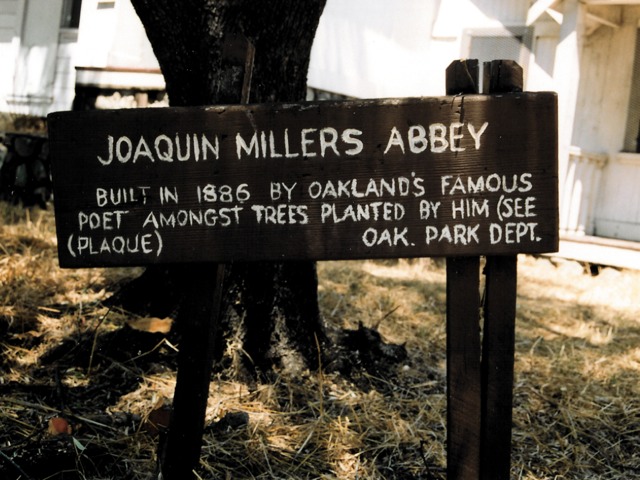 JOAQUIN MILLERS ABBEY
BUILT IN 1886 BY OAKLAND'S FAMOUS
POET AMONGST TREES PLANTED BY HIM (SEE
(PLAQUE) OAK. PARK DEPT.